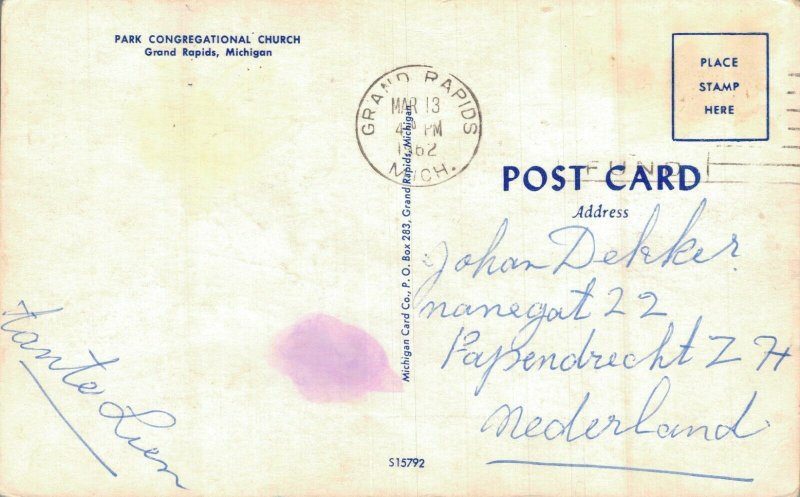 PARK CONGREGATIONAL CHURCH
Grand Rapids, Michigan
GRAND RAPIDS
MAR 13
4 PM
1962
MICH.
PLACE
STAMP
HERE
FUND
POST CARD
Address
Johan Dekker
nanegat 22
Papendrecht Z H
Nederland
Tante Lien
Michigan Card Co., P. O. Box 283, Grand Rapids, Michigan
S15792